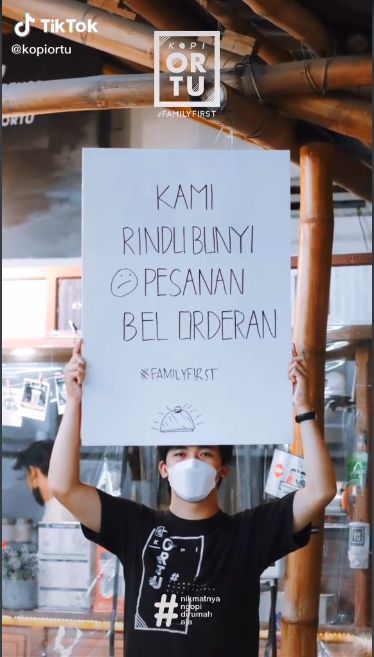 TikTok
@kopiortu
KOPI
OR
TU
#FAMILYFIRST
KAMI
RINDU BUNYI
PESANAN
BEL ORDERAN
#FAMILYFIRST
KOPI
ORTU
#
nikmatnya
ngopi
dirumah
aja